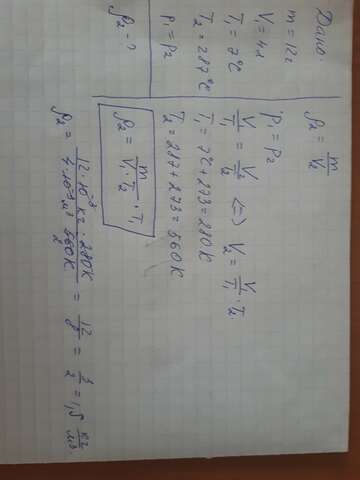 Дано:
m = 12г
V₁ = 4л
T₁ = 7°C
T₂ = 287°C
p₁ = p₂
ρ₂ - ?
ρ₂ = m/V₂
p₁ = p₂
V₁/T₁ = V₂/T₂ <=> V₂ = V₁/T₁ · T₂
T₁ = 7°C + 273 = 280K
T₂ = 287 + 273 = 560K
ρ₂ = m/(V₁ · T₂) · T₁
ρ₂ = (12·10⁻³ кг · 280K)/(4·10⁻³ м³ 560K) = 12/8 = 3/2 = 1,5 кг/м³
2